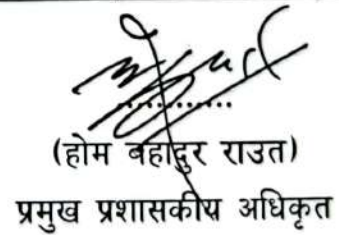 ............
(होम बहादुर राउत)
प्रमुख प्रशासकीय अधिकृत